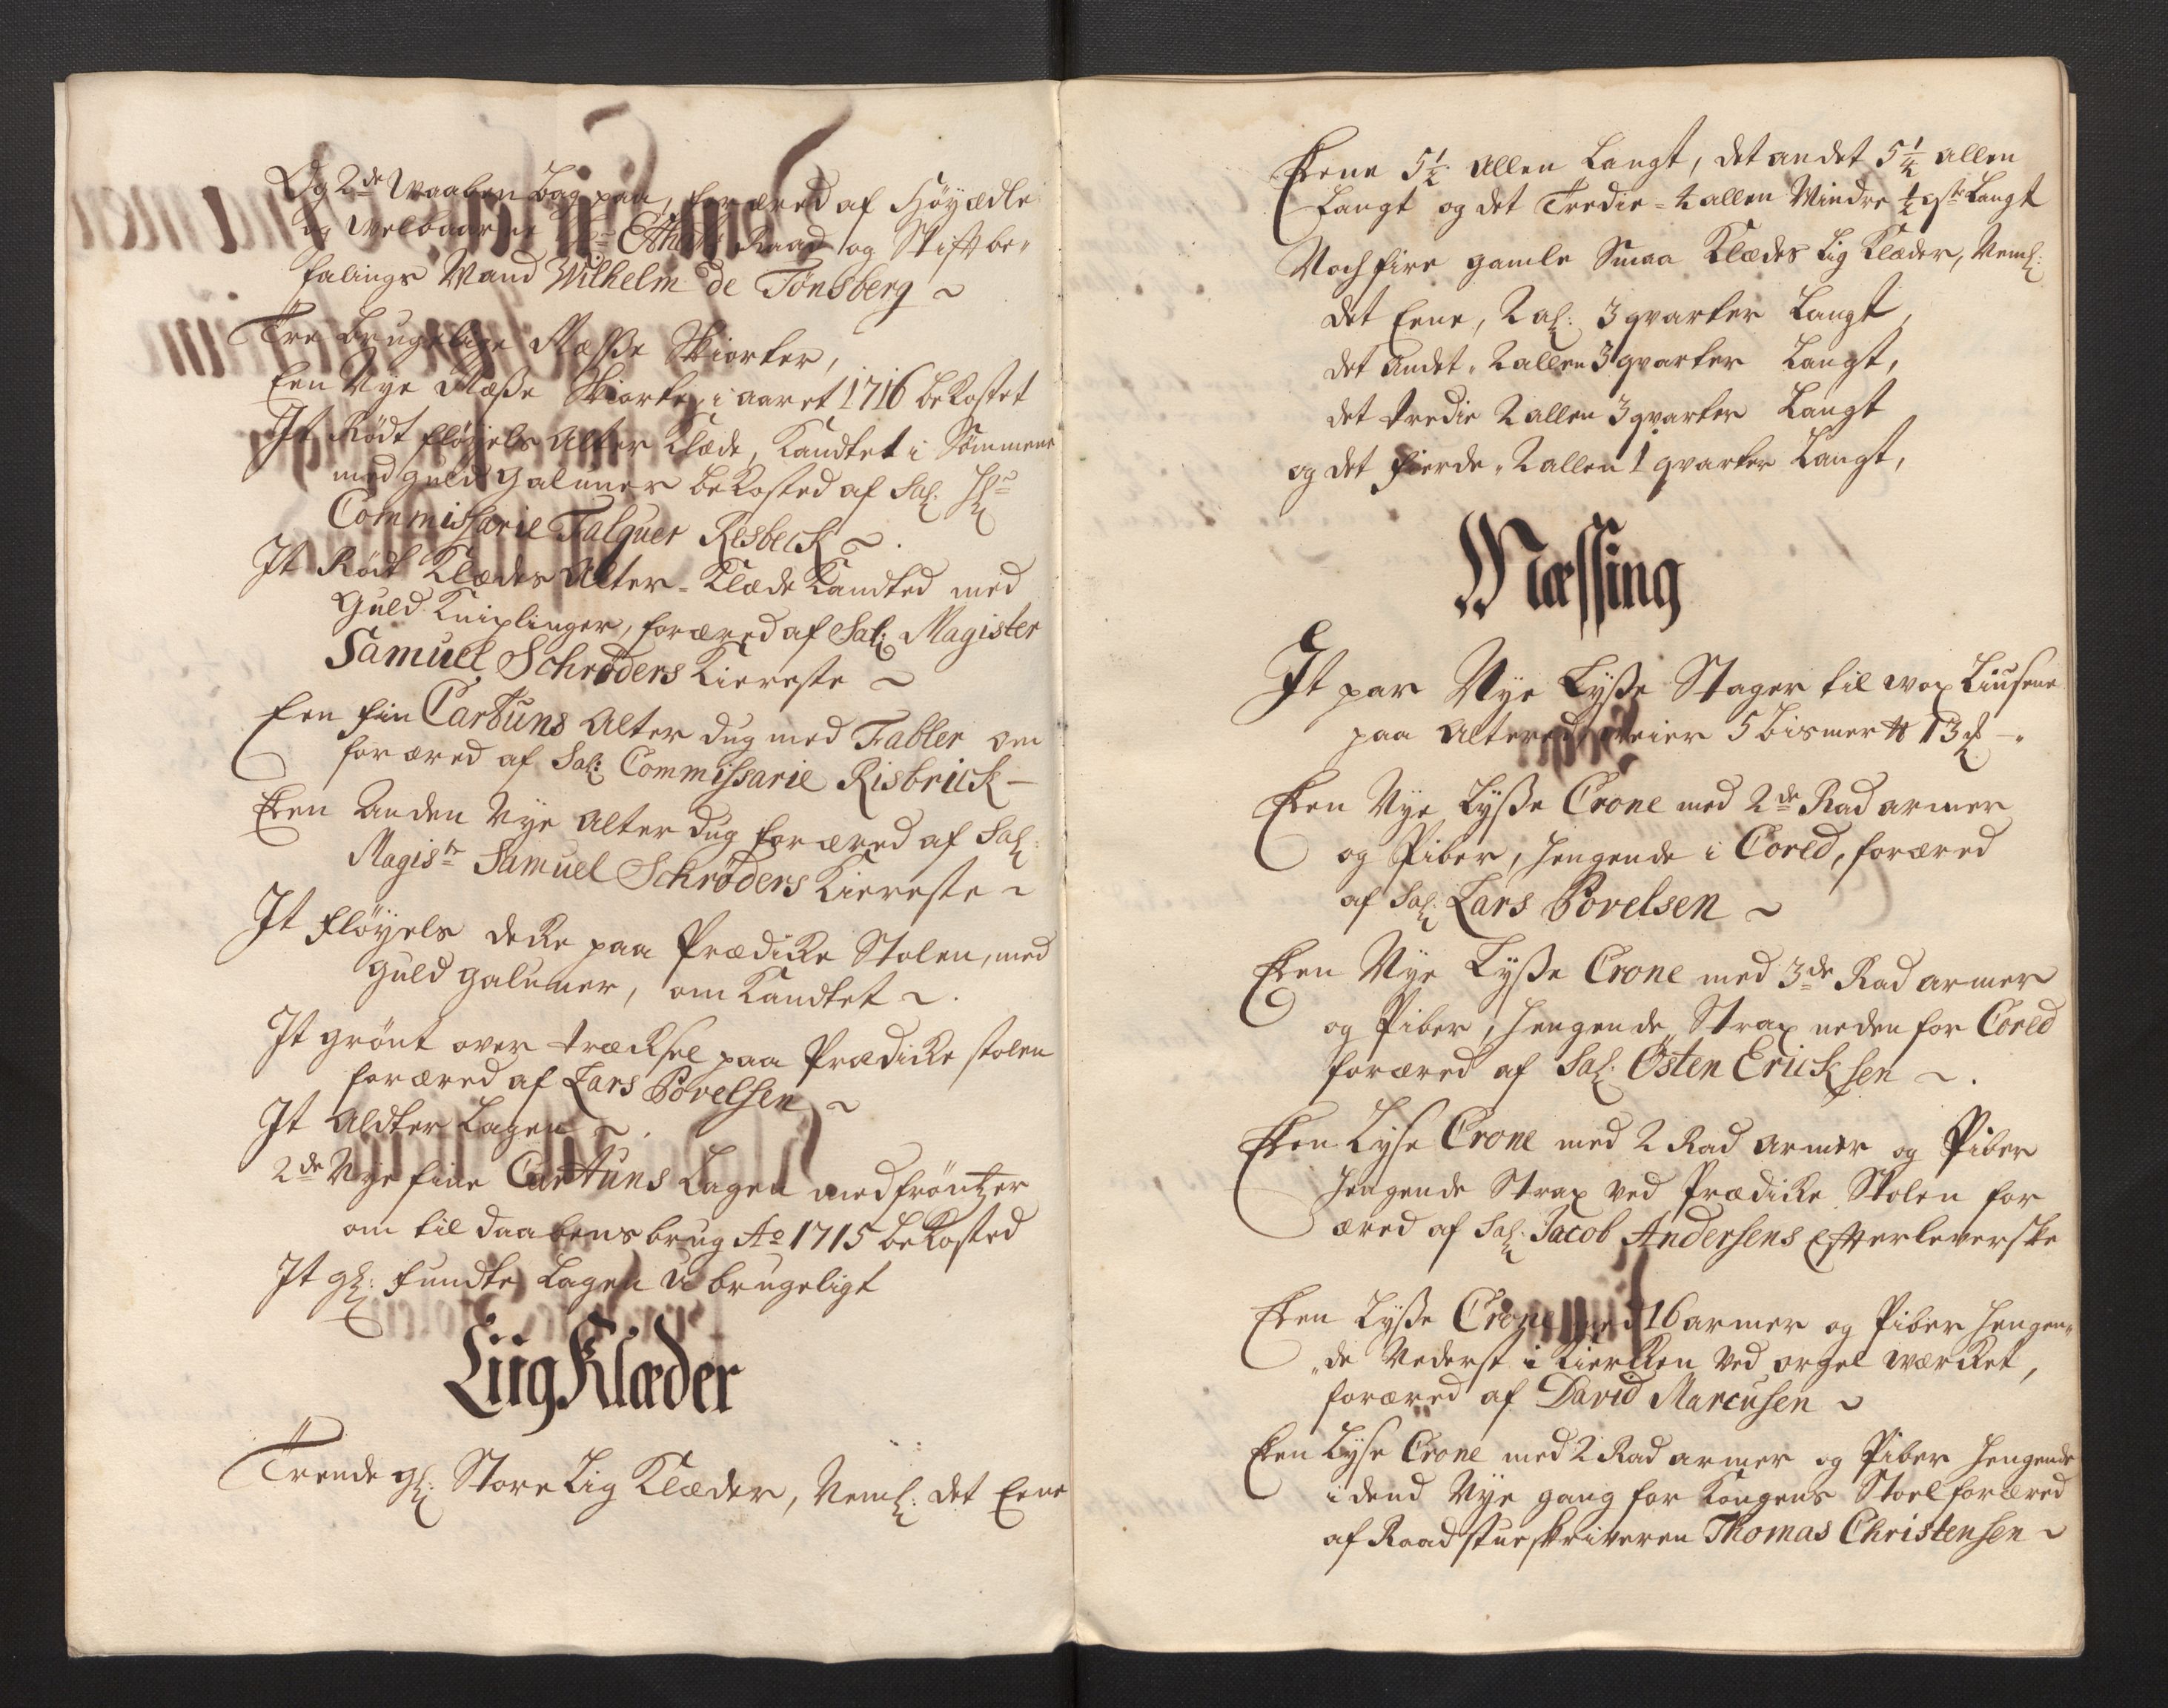 Og 2de Waaben bag paa, foræred af Höyædle
og Welbaarne Hr Etats Raad og Stiftbe„
falings Mand Wilhelm de Tönsberg ~
Tre brugelige Mæsse Skiorter,
Een Nye Mæsse Skiorte, i aaret 1716 bekostet
It Rödt flöyels Alter Klæde, Kandtet i Sömmene
med guld galuner bekosted af Sal. Hr
Commissarie Falquer Resbeck ~.
It Rödt Klædes Alter-Klæde Kandted med
Guld Kniplinger, foræred af Sal: Magister
Samuel Schröders Kiereste ~
Een fin Cartuns Alter dug med Tabler om
foræred af Sal: Commissarie Risbrick —
Een Anden Nye Alter dug foræred af Sal:
Magistr Samuel Schröders Kiereste ~
It Flöyels decke paa Prædicke Stolen, med
Guld galuner, om Kandtet ~.
It grönt over træcksel paa Prædicke stolen
foræred af Lars Povelsen ~
It Aldter Lagen ~.
2de Nye fine Cartuns Lagen med fröntzer
om til daabens brug Ao 1715 bekosted
It gl: fundte Lagen ubrugeligt
Liig Klæder
Trende gl: Store Lig Klæder, Neml: det Eene
Eene 5½ Allen Langt, det andet 5¼ allen
Langt og det Tredie - 2 allen Mindre ½ qrt Langt
Noch fire gamle Smaa Klædes Lig Klæder, Neml:
det Eene, 2 al: 3 qvarter Langt,
det Andet „ 2 allen 3 qvarter Langt,
det tredie 2 allen 3 qvarter Langt
og det fierde „ 2 allen 1 qvarter Langt,
Mæssing
It par Nye Lysse Stager til wox Liusene
paa Altered, veier 5 bismer ℔ 13 —„
Een Nye Lysse Crone med 2de Rad armer
og Piber, hengende i Cored, foræred
af Sal: Lars Povelsen ~
Een Nye Lysse Crone med 3de Rad armer
og Piber, hengende Strax neden for Cored
foræred af Sal: Östen Ericksen ~.
Een Lyse Crone med 2 Rad armer og Piber
hengende Strax ved Prædicke Stolen for
æred af Sal: Jacob Andersens Efterleverske
Een Lysse Crone med 16 armer og Piber hengen„
„de Nederst i Kiercken ved orgel wærcket,
foræred af David Marcusen ~
Een Lyse Crone med 2 Rad armer og Piber hengende
i dend Nye gang for Kongens Stoel foræred
af Raadstueskriveren Thomas Christensen ~